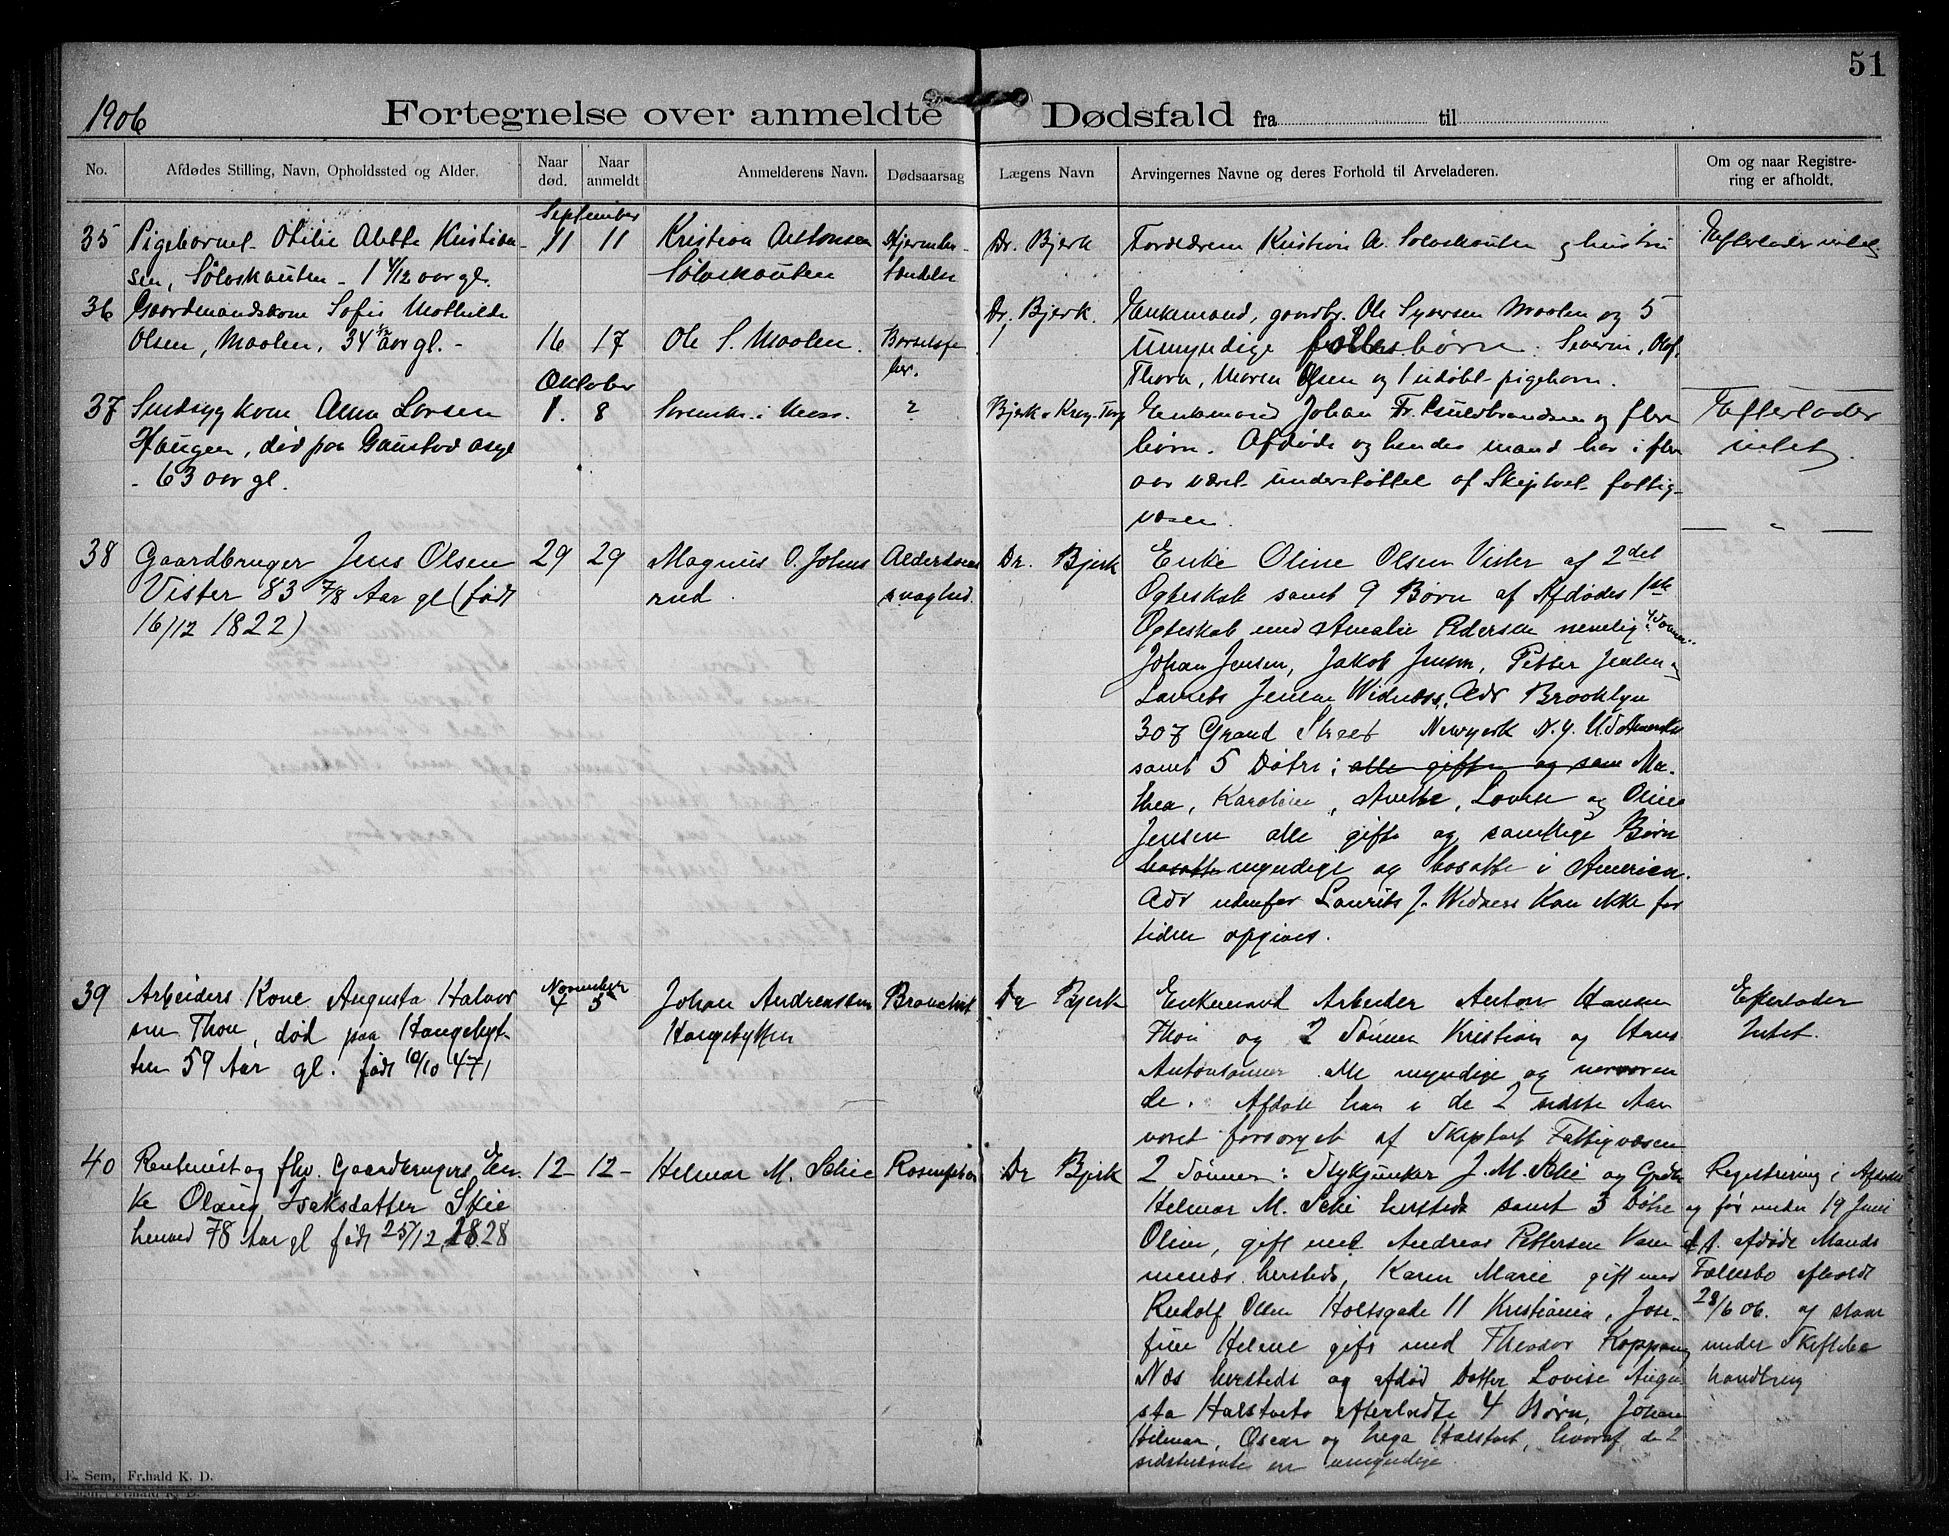 51
1906
Fortegnelse over anmeldte Dødsfald fra til
No.
Afdødes Stilling, Navn, Opholdssted og Alder.
Naar død.
Naar anmeldt
Anmelderens Navn.
Dødsaarsag
Lægens Navn
Arvingernes Navne og deres Forhold til Arveladeren.
Om og naar Registre-
ring er afholdt.
September
35 Pigebarnet Otilie Alette Kristian-
sen, Sølvskauten - 1 4/12 aar gl.
11 11
Kristian Antonsen
Sølvskauten
Hjernebe-
tændelse
Dr. Bjerk
Forældrene Kristian A. Sølvskauten og hustru
Efterlader intet
36 Gaardmandskone Sofie Mathilde
Olsen, Maalen, 34 1/2 aar gl. -
16 17
Ole S. Maalen.
Barselsfe
ber.
Dr. Bjerk.
Enkemand, gaardbr. Ole Syversen Maalen og 5
umyndige fællesbørn. Severin, Olaf,
Thora, Maren Olsen og 1 udøbt pigebarn.
Oktober
37 Sindsyg kone Anna Larsen
Haugen, død paa Gaustad asyl
- 63 aar gl.
1. 8
?
Enkemand Johan Fr. Guldbrandsen og flere
børn. Afdøde og hendes mand har i flere
aar været understøttet af Skiptvet fattig-
væsen.
Efterlader
intet
— " —
38 Gaardbruger Jens Olsen
Vister 83 7/8 Aar gl (født
16/12 1822)
29 29
Magnus O. Johns
rud.
Alderdoms
svaghed.
Dr. Bjerk
Enke Oline Olsen Vister af 2det
Ægteskab samt 9 Børn af Afdødes 1ste
Ægteskab med Amalie Pedersen nemlig 4 Sønner:
Johan Jensen, Jakob Jensen, Petter Jensen og
Laurits Jensen Widness, Adr Brooklyn
307 Grand Street Newyork N.Y. U.S. Amerika
samt 5 Døtre; alle gifte og som Ma-
thea, Karoline, Anette, Lovise og Oline
Jensen alle gifte og samtlige Børn
bosatte myndige og bosatte i America.
Adr udenfor Laurits J. Widness kan ikke for
tiden opgives.
39 Arbeiders Kone Augusta Halvor
sen Thon, død paa Haugebyt-
ten 59 Aar gl. født 10/10 47)
November
4 5
Johan Andreassen
Haugebytten
Dr Bjerk
Enkemand Arbeider Anton Hansen
Thon og 2 Sønner Kristian og Hans
Antonsønner alle myndige og nærværen
de. Afdøde har i de 2 sidste Aar
været forsørget af Skiptvet Fattigvæsen
Efterlader
Intet.
40 Rentenist og fhv. Gaardbrugers En-
ke Olaug Isaksdatter Skie
herved 78 Aar gl født 25/12 1828
12 - 12 -
Helmar M. Schie
Dr Bjerk
2 Sønner: Stykjunker J. M. Schie og Gbr
Helmar M. Schie herstedes samt 3 Døtre
Oline, gift med Andreas Pettersen Kam
menæs herstede, Karen Marie gift med
Rudolf Olsen Holtsgade 11 Kristiania, Jose-
fine Helene gift med Theodor Koppang
Næs herstedes og afdød Datter Lovise Augu-
sta Halstvets efterladte 4 Børn, Johan
Hilmar, Oscar og Inga Halstvet, hvoraf de 2
sidstnævnte er umyndige
Registrering i Afdødes
og før under 19 Juni
d. A. afdøde Mands
Fællesbo afholdt
28/6 06. og staar
under Skiftebe
handling
E. Sem, Fr.hald K. D.